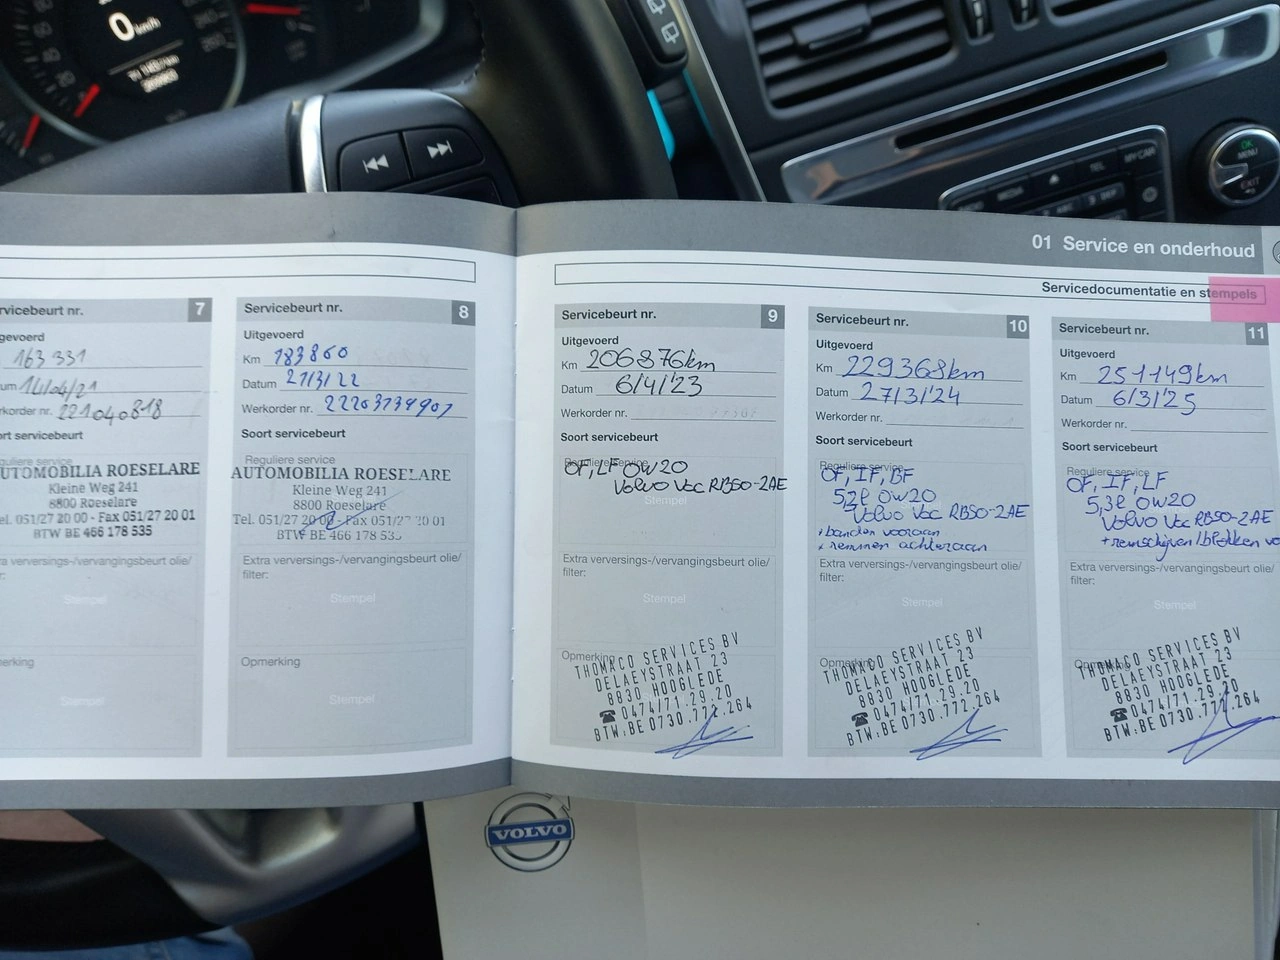 0 km/h
MEDIA
TEL
MY CAR
OK
MENU
EXIT
01 Service en onderhoud
Servicedocumentatie en stempels
rvicebeurt nr. 7
gevoerd
163 331
um 14/04/21
rkorder nr. 221040818
ort servicebeurt
Reguliere service
UTOMOBILIA ROESELARE
Kleine Weg 241
8800 Roeselare
el. 051/27 20 00 - Fax 051/27 20 01
BTW BE 466 178 535
tra verversings-/vervangingsbeurt olie/
r:
Stempel
merking
Stempel
Servicebeurt nr. 8
Uitgevoerd
Km 183860
Datum 21/3/22
Werkorder nr. 22203734907
Soort servicebeurt
Reguliere service
AUTOMOBILIA ROESELARE
Kleine Weg 241
8800 Roeselare
Tel. 051/27 20 00 - Fax 051/27 20 01
BTW BE 466 178 535
Extra verversings-/vervangingsbeurt olie/
filter:
Stempel
Opmerking
Stempel
Servicebeurt nr. 9
Uitgevoerd
Km 206876km
Datum 6/4/'23
Werkorder nr.
Soort servicebeurt
Reguliere service
OF, LF 0W20
Volvo Vcc RBS0-2AE
Stempel
Extra verversings-/vervangingsbeurt olie/
filter:
Stempel
Opmerking
Stempel
THOMACO SERVICES BV
DELAEYSTRAAT 23
8830 HOOGLEDE
☎ 0474/71.29.20
BTW:BE 0730.772.264
Servicebeurt nr. 10
Uitgevoerd
Km 229368km
Datum 27/3/'24
Werkorder nr.
Soort servicebeurt
Reguliere service
OF, IF, BF
5,2l 0W20
Volvo Vcc RBS0-2AE
+ banden vooraan
+ remmen achteraan
Extra verversings-/vervangingsbeurt olie/
filter:
Stempel
Opmerking
THOMACO SERVICES BV
DELAEYSTRAAT 23
8830 HOOGLEDE
☎ 0474/71.29.20
BTW:BE 0730.772.264
Servicebeurt nr. 11
Uitgevoerd
Km 251149km
Datum 6/3/'25
Werkorder nr.
Soort servicebeurt
Reguliere service
OF, IF, LF
5,3l 0W20
Volvo Vcc RBS0-2AE
+ remschijven/blokken vo
Extra verversings-/vervangingsbeurt olie/
filter:
Stempel
Opmerking
THOMACO SERVICES BV
DELAEYSTRAAT 23
8830 HOOGLEDE
☎ 0474/71.29.20
BTW:BE 0730.772.264
VOLVO